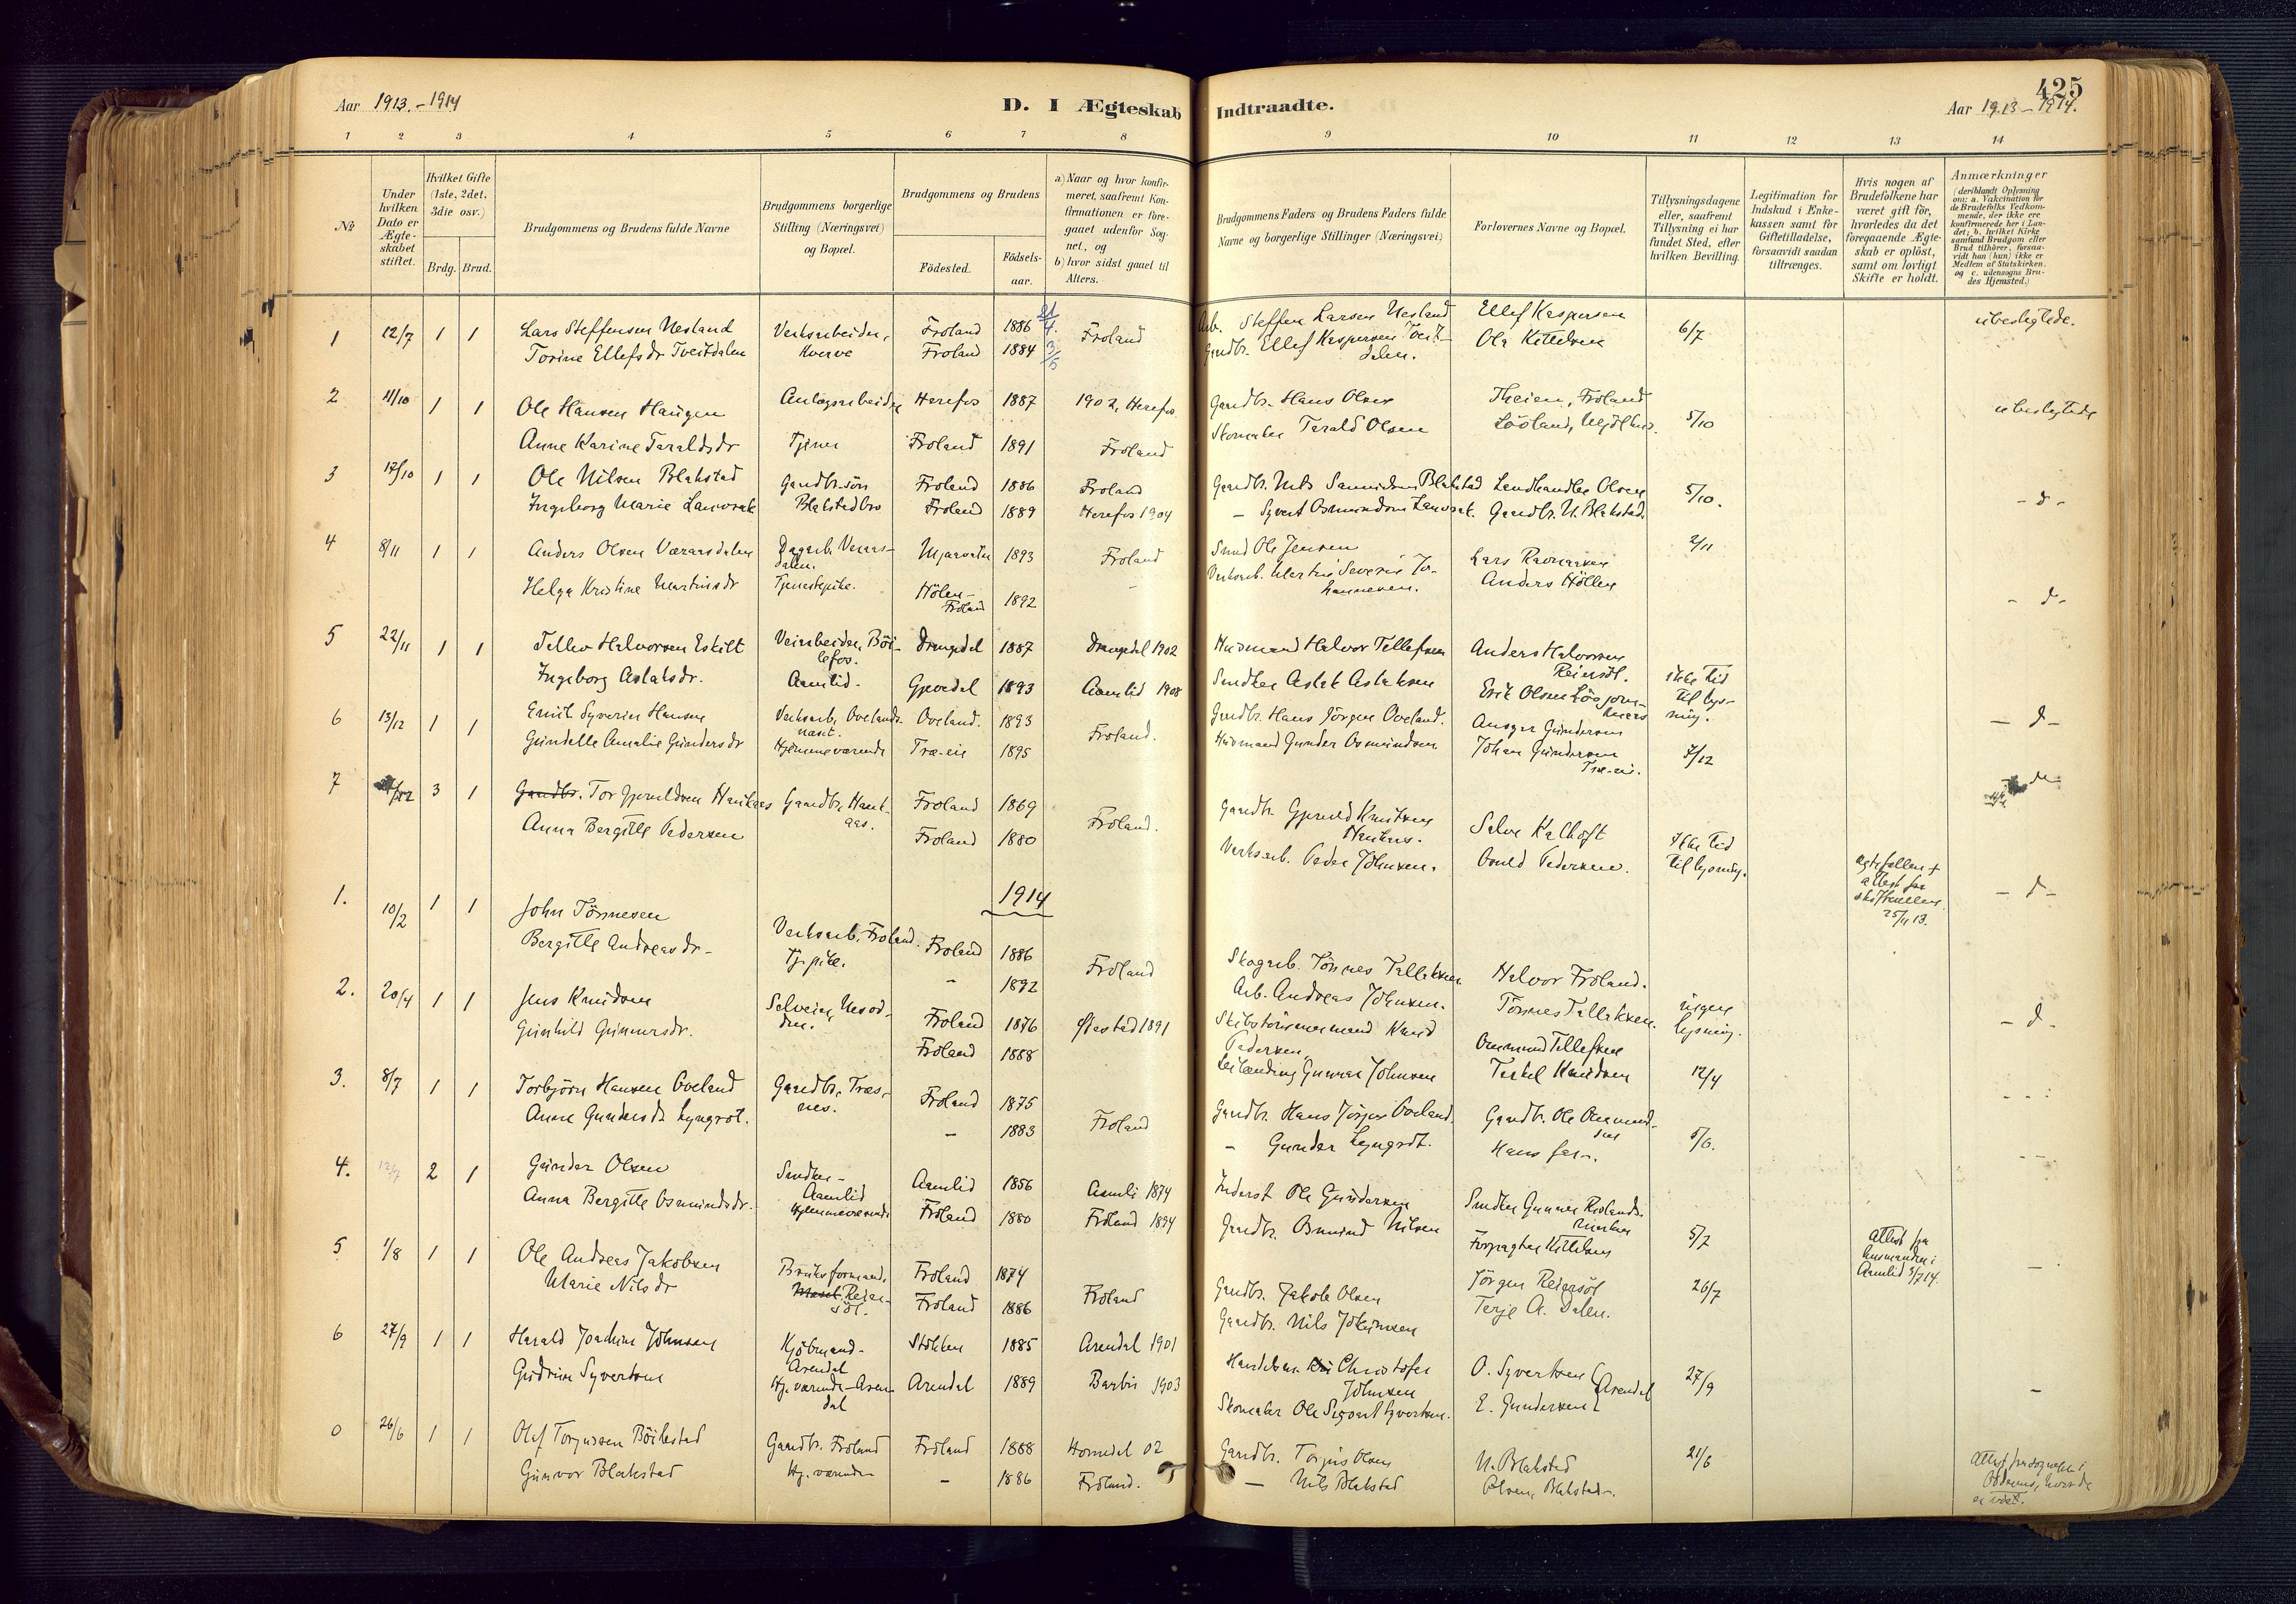 Aar 1913.-1914
D. I Ægteskab Indtraadte.
425
Aar 1913-1914.
1 2 3 4 5 6 7 8 9 10 11 12 13 14
No
Under hvilken Dato er Ægteskabet stiftet.
Hvilket Gifte (1ste, 2det, 3die osv.)
Brdg. Brud.
Brudgommens og Brudens fulde Navne
Brudgommens borgerlige Stilling (Næringsvei) og Bopæl.
Brudgommens og Brudens
Fødested.
Fødselsaar.
a) Naar og hvor konfirmeret, saafremt Konfirmationen er foregaaet udenfor Sognet, og
b) hvor sidst gaaet til Alters.
Brudgommens Faders og Brudens Faders fulde Navne og borgerlige Stillinger (Næringsvei)
Forlovernes Navne og Bopæl.
Tillysningsdagene eller, saafremt Tillysning ei har fundet Sted, efter hvilken Bevilling.
Legitimation for Indskud i Enkekassen samt for Giftetilladelse, forsaavidt saadan tiltrænges.
Hvis nogen af Brudefolkene har været gift før, hvorledes da det foregaaende Ægteskab er opløst, samt om lovligt Skifte er holdt.
Anmærkninger
(deriblandt Oplysning om: a. Vakcination for de Brudefolks Vedkommende, der ikke ere konfirmerede her i Landet; b. hvilket Kirkesamfund Brudgom eller Brud tilhører, forsaavidt han (hun) ikke er Medlem af Statskirken, og c. udensogns Brudes Hjemsted.)
1 12/7 1 1 Lars Steffensen Nesland Verksarbeider, Froland 1886 21/4. Froland Arb. Steffen Larsen Nesland Ellef Kaspersen 6/7 ubeslegtede.
Torine Ellefsdr Tveitdalen Kverve Froland 1884 3/5 Gardbr. Ellef Kaspersen Tveitdalen. Ola Kittelsen
2 11/10 1 1 Ole Hansen Haugen Anlægsarbeider Herefos 1887 1902, Herefos Gaardbr. Hans Olsen Theien, Froland 5/10 ubeslegtede
Anne Karine Taraldsdr Tjener Froland 1891 Froland Skomaker Tarald Olsen
3 17/10 1 1 Ole Nilsen Blakstad Gaardbr.søn Froland 1886 Froland Gaardbr. Nils Blakstad Landhandler Olsen 5/10. - d -
Ingeborg Marie Blakstadbro Froland 1889 Herefos 1904 - Syvert Osmundsen Gaardbr. N. Blakstad.
4 8/11 1 1 Anders Olsen Væraasdalen 1893 Froland Smed Ole Jensen Lars 2/11
Helga Kristine Martinsdr Tjenestepike. Hölen - Froland 1892 - Verksarb. Martin Severin Johannesen. Anders Höllen - d -
5 22/11 1 1 Tellev Halvorsen Eskilt Veiarbeider, Böilefos. Drangedal 1887 Drangedal 1902 Husmand Halvor Tellefsen Anders Halvorsen Reiersöl. ikke tid til lysning.
Ingeborg Aslaksdr. Aamlid - Gjövdal 1893 Aamlid 1908 Smeden Aslak Aslaksen Erik Olsen
6 13/12 1 1 Emil Syverin Hansen Verksarb. Ovelands Oveland. 1893 Froland. Gardbr. Hans Jörgen Oveland. Ansgar Gundersen 7/12 - d -
Gundelle Amalie Gundersdr Hjemmeværende Træ-eie 1895 Husmand Gunder Osmundsen Johan Gundersen Træ-eie.
7 3 1 Gaardbr. Tor Gjeruldsen Haukaas Gaardbr. Haukaas. Froland 1869 Froland. Gaardbr. Gjeruld Knutsen Haukaas. Salve Kalhoft Ikke tid til lysning.
Anna Bergitte Pedersen Froland 1880 Verksarb. Peder Johnsen. Pedersen. 25/11 13. - d -
1914
1. 10/2 1 1 John Tönnesen Verksarb. Froland. Froland 1886 Froland Skogarb. Tönnes Tellefsen Halvor Froland. ingen lysning. - d -
Bergitte Andreasdr - Tj. pike. - 1892 Arb. Andreas Johnsen. Tönnes Tellefsen.
2. 20/4 1 1 Jens Knudsen Selveier, Froland 1876 Öiestad 1891 Skibstömmermand Knud Pedersen Osmund Tellefsen 12/4
Gunhild Gunnersdr. Froland 1888 Leilending Gunnar Johnsen Terkel Knudsen
3. 8/7 1 1 Torbjörn Hansen Oveland Gaardbr. Træsnes. Froland 1875 Froland Gaardbr. Hans Jörgen Oveland Gaardbr. Ole Osmundsen 5/6.
Anne Gundersdr Lyngrot. - 1883 - Gunder Lyngrot.
4. 12/7 2 1 Gunder Olsen Smeden - Aamlid Aamlid 1856 Aamli 1874 Inderst Ole Gundersen Smeden Gunner 5/7
Anna Bergitte Osmundsdr. Hjemmeværende Froland 1880 Froland 1894 Gaardbr. Osmund Nilsen Forpagter Kittelsen Attest fra lensmanden i Aamlid 3/7 14.
5 1/8 1 1 Ole Andreas Jakobsen Bruksformand, Reiersöl. Froland 1874 Froland Gaardbr. Jakob Olsen Jörgen Reiersöl 26/7 -
Marie Nilsdr Froland 1886 Gaardbr. Nils Terje A. Dalen.
6 27/9 1 1 Harald Joachim Johnsen Kjöbmand - Arendal Stokken 1885 Arendal 1901 Christofer Johnsen O. Syvertsen Arendal 27/9 -
Gudrun Syvertsen Hj. værende - Arendal Arendal 1889 Barbu 1903 Skomaker Ole Sigvart Syvertsen. E. Gundersen
0 26/6 1 1 Olaf Torjussen Böilestad Gaardbr. Froland Froland 1888 Hornedal 02 Gaardbr. Torjus Olsen N. Blakstad 21/6
Gunvor Blakstad Hj. værende - 1886 Froland. - Nils Blakstad Olsen, Blakstad.